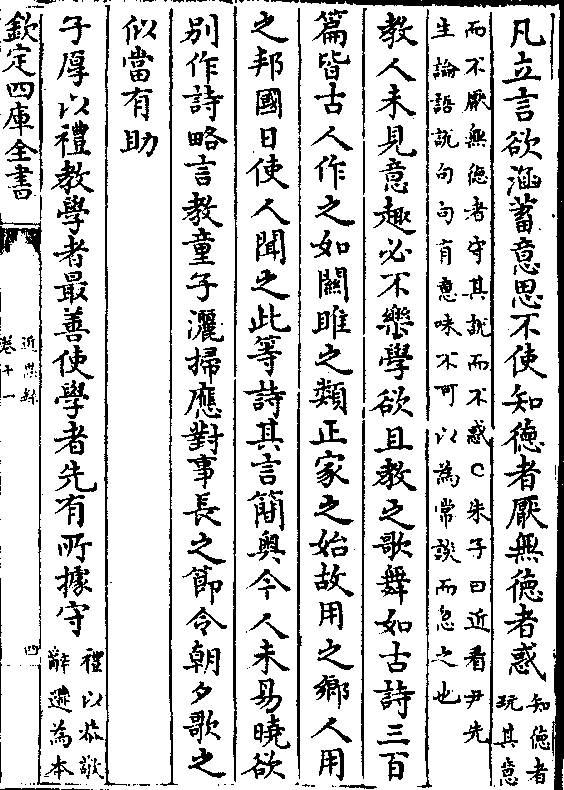 凡立言欲涵蓄意思不使知徳者厭無徳者惑知徳者玩其意
而不厭無徳者守其說而不惑○朱子曰近看尹先
生論語說句句有意味不可以為常談而忽之也
教人未見意趣必不樂學欲且教之歌舞如古詩三百
篇皆古人作之如關雎之類正家之始故用之鄉人用
之邦國日使人聞之此等詩其言簡奥今人未易曉欲
别作詩略言教童子灑掃應對事長之節令朝夕歌之
似當有助
子厚以禮教學者最善使學者先有所據守禮以恭敬
辭遜為本
欽定四庫全書
近思録
卷十一
四